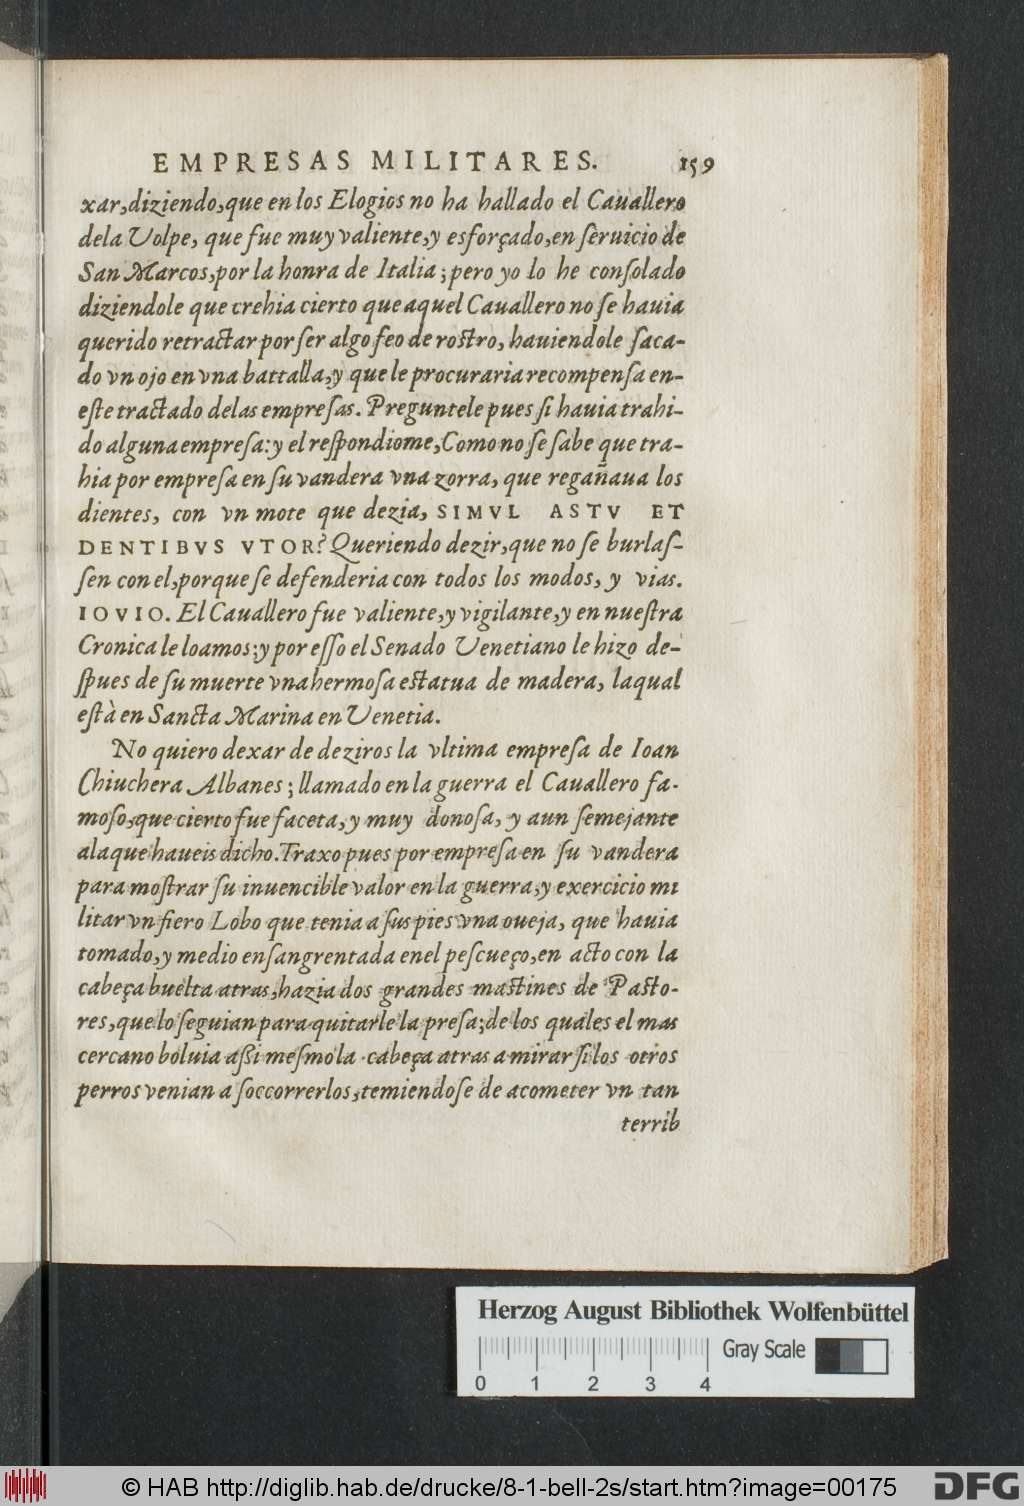 EMPRESAS MILITARES. 159
xar,diziendo,que en los Elogios no ha hallado el Cauallero
dela Volpe, que fue muy valiente,y esforçado,en ſeruicio de
San Marcos,por la honra de Italia; pero yo lo he conſolado
diziendole que crehia cierto que aquel Cauallero no ſe hauia
querido retractar por ſer algo feo de roſtro, hauiendole ſaca-
do vn ojo en vna battalla,y que le procuraria recompenſa en-
eſte tractado delas empreſas. Preguntele pues ſi hauia trahi-
do alguna empreſa: y el reſpondiome,Como no ſe ſabe que tra-
hia por empreſa en ſu vandera vna zorra, que regañaua los
dientes, con vn mote que dezia, SIMVL ASTV ET
DENTIBVS VTOR? Queriendo dezir,que no ſe burlaſ-
ſen con el,porque ſe defenderia con todos los modos, y vias.
IOVIO. El Cauallero fue valiente,y vigilante,y en nueſtra
Cronica le loamos;y por eſſo el Senado Venetiano le hizo de-
ſpues de ſu muerte vna hermoſa eſtatua de madera, laqual
eſtà en Sancta Marina en Venetia.
No quiero dexar de deziros la vltima empreſa de Ioan
Chiuchera Albanes; llamado en la guerra el Cauallero fa-
moſo,que cierto fue faceta,y muy donoſa, y aun ſemejante
alaque haueis dicho.Traxo pues por empreſa en ſu vandera
para moſtrar ſu inuencible valor en la guerra,y exercicio mi
litar vn fiero Lobo que tenia a ſus pies vna oueja, que hauia
tomado,y medio enſangrentada enel peſcueço,en acto con la
cabeça buelta atras,hazia dos grandes maſtines de Paſto-
res,que lo ſeguian para quitarle la preſa;de los quales el mas
cercano boluia aßi meſmo la cabeça atras a mirar ſi los otros
perros venian a ſoccorrerlos,temiendoſe de acometer vn tan
terrib
Herzog August Bibliothek Wolfenbüttel
Gray Scale
0 1 2 3 4
© HAB http://diglib.hab.de/drucke/8-1-bell-2s/start.htm?image=00175
DFG